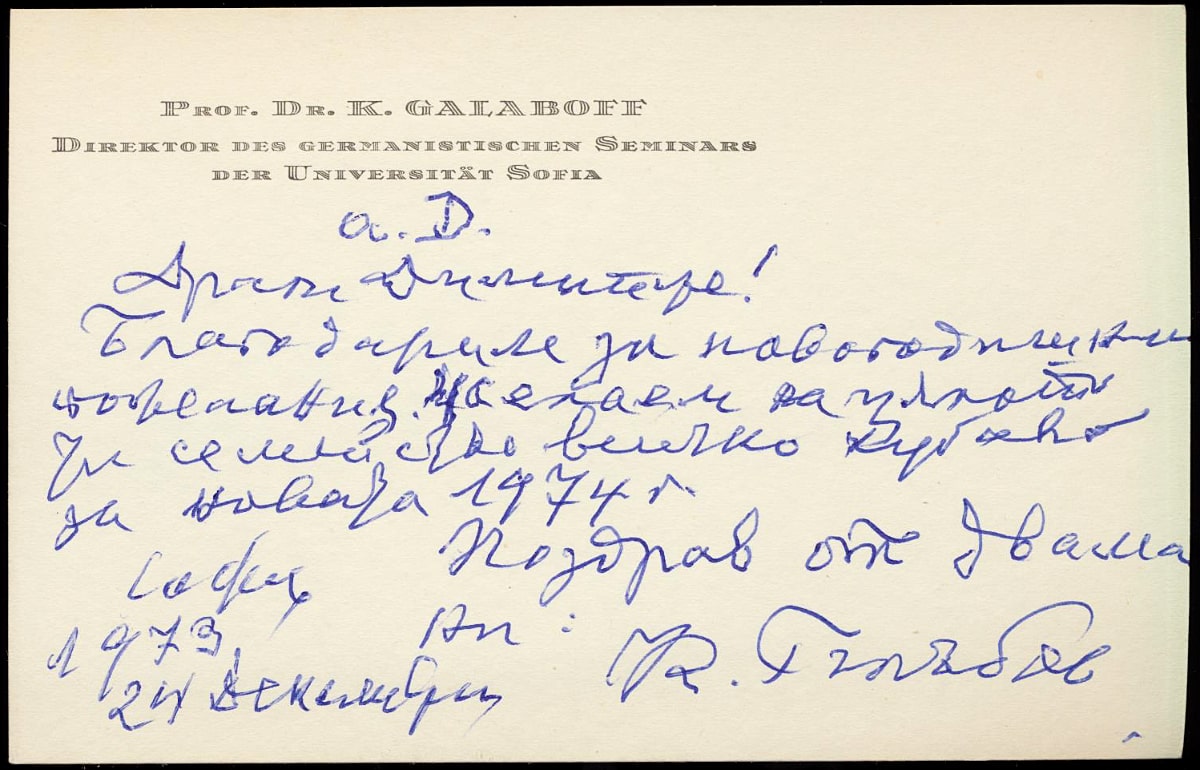 PROF. DR. K. GALABOFF
DIREKTOR DES GERMANISTISCHEN SEMINARS
DER UNIVERSITÄT SOFIA
a. D.
Драги Димитре!
Благодариме за новогодишни
пожелания. Желаем на цялото
ти семейство всичко хубаво
за новата 1974 г.
Поздрав от двама
ни:
София
1973
24 Декември
К. Гълъбов